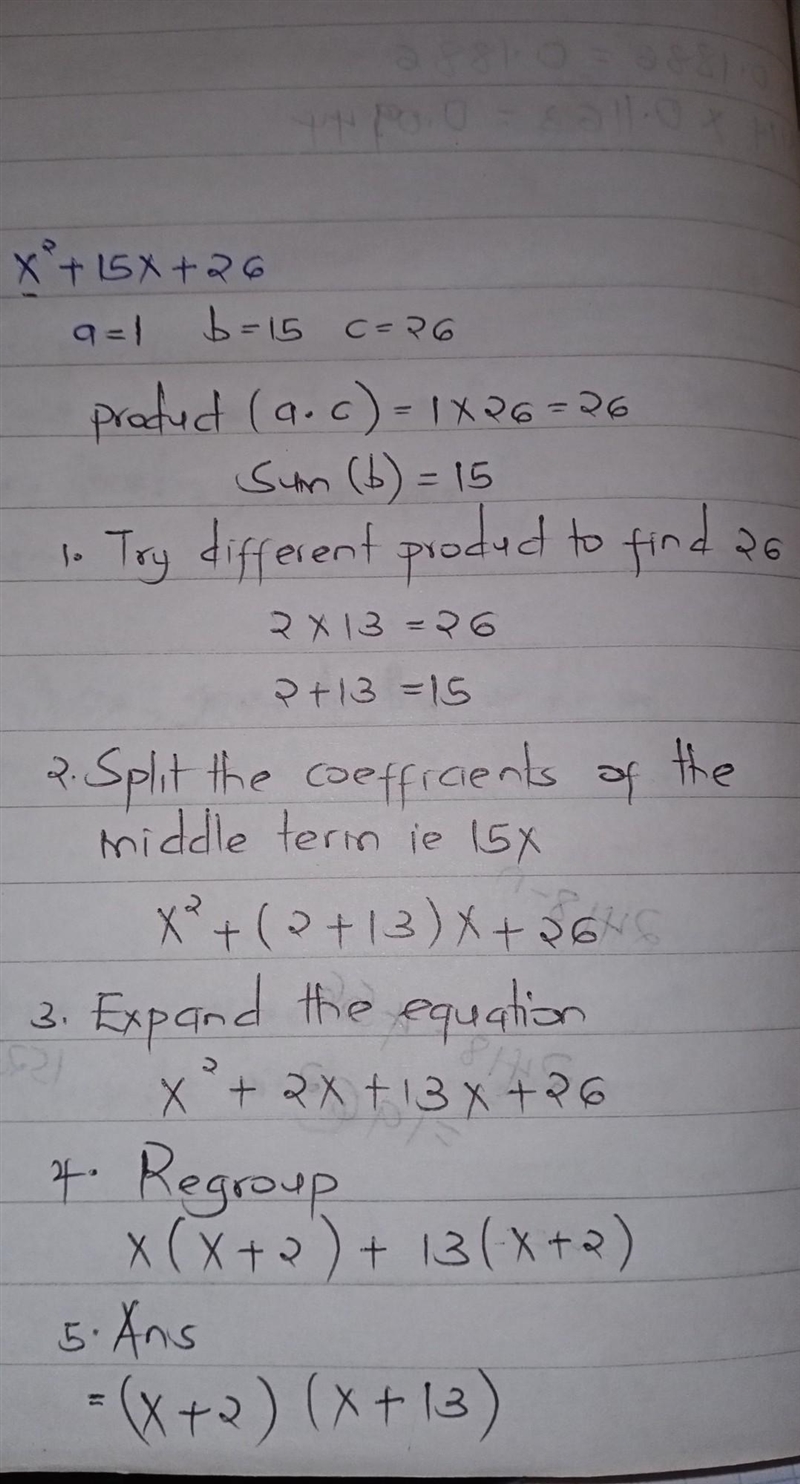 x² + 15x + 26
a = 1 b = 15 c = 26
product (a . c) = 1 x 26 = 26
Sum (b) = 15
1. Try different product to find 26
2 x 13 = 26
2 + 13 = 15
2. Split the coefficients of the
middle term ie 15x
x² + (2 + 13) x + 26
3. Expand the equation
x² + 2x + 13x + 26
4. Regroup
x(x + 2) + 13(x + 2)
5. Ans
= (x + 2) (x + 13)